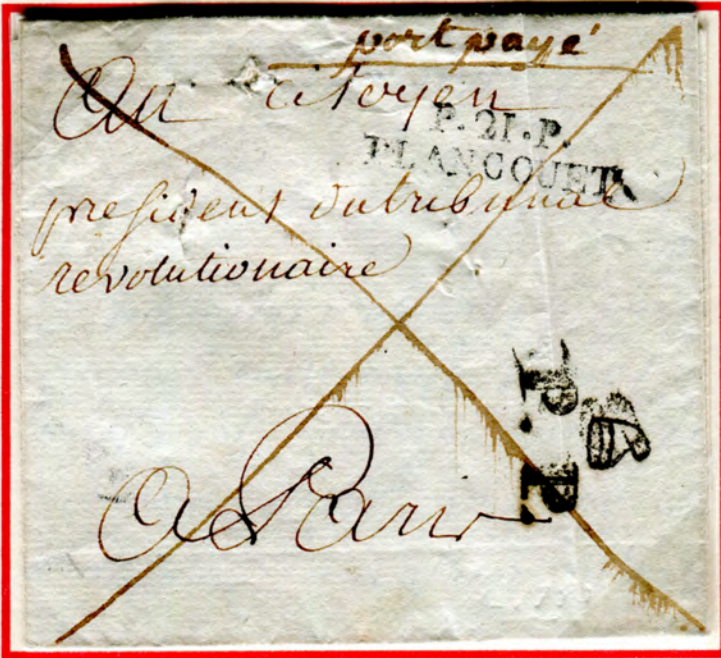 port payé
Au citoyen
P.21.P.
PLANCOUET
president du tribunal
revolutionaire
a Paris
P.P.